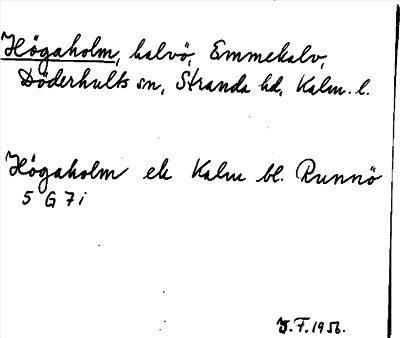 Högaholm, halvö, Emmekalv,
Döderhults sn, Stranda hd, Kalm. l.
Högaholm ek Kalm bl. Runnö
5 G 7 i
J.F. 1956.